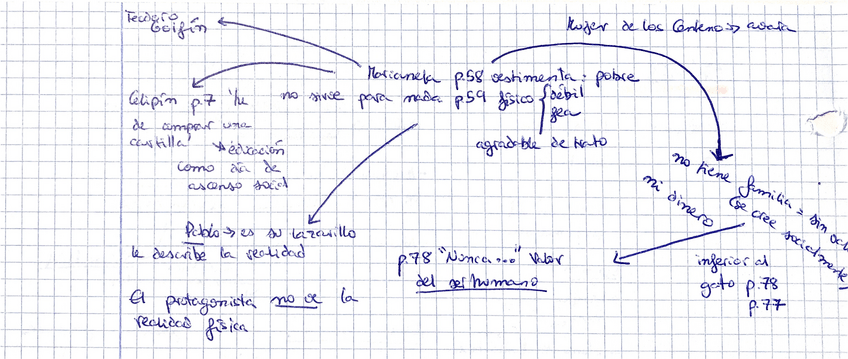 Teodoro
Golfín
Mujer de los Centeno => avara
Marianela p.58 vestimenta: pobre
no sirve para nada p.59 físico { débil
fea
agradable de trato
Celipín p.7 "he
de comprar una
cartilla"
educación
como vía de
ascenso social
Pablo → es su lazarillo
le describe la realidad
El protagonista no ve la
realidad física
no tiene familia = sin
ni dinero
(se cree socialmente
inferior al
gato p.78
p.77
p.78 "Nunca..." Valor
del ser humano